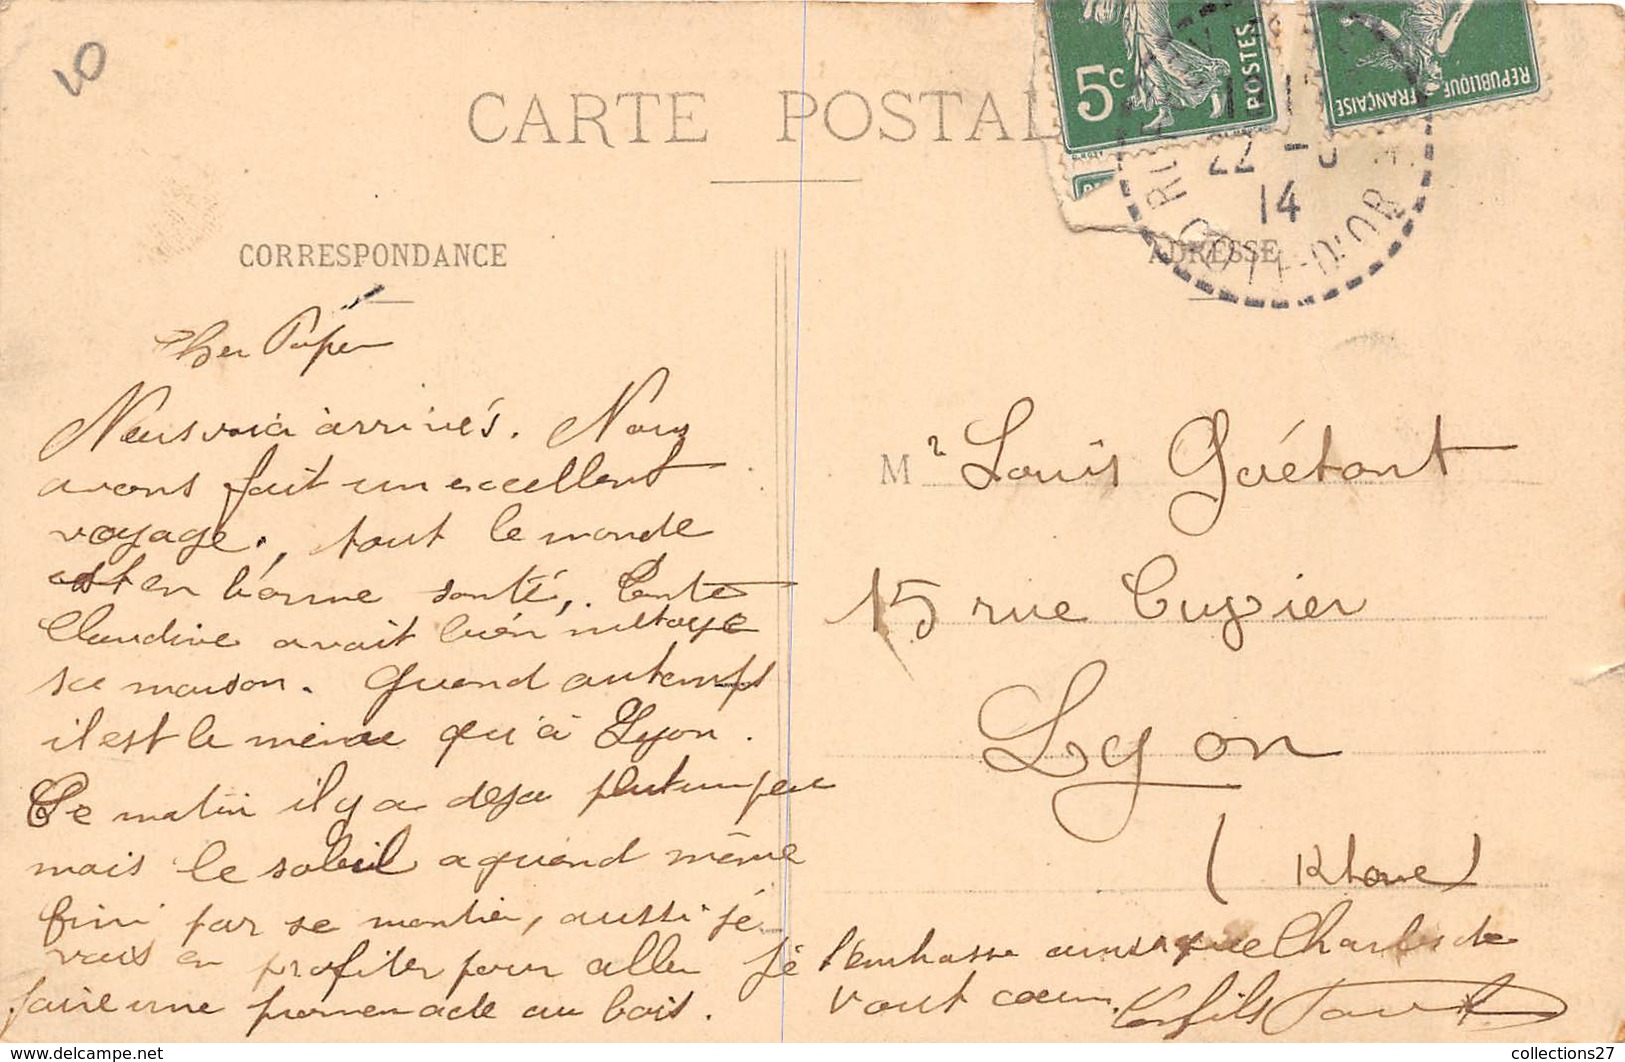 10
CARTE POSTAL
5c
POSTES
REPUBLIQUE FRANÇAISE
22 -
14
COTE-D'OR
CORRESPONDANCE
ADRESSE
Cher Papa
Nous voici arrivés. Nous
avons fait un excellent
voyage., tout le monde
est en bonne santé, Tante
Claudine avait bien nettoyé
sa maison. Quand au temps
il est le même qu'à Lyon.
Ce matin il y a deja plut un peu
mais le soleil a quand même
fini par se montrer, aussi je
vais en profiter pour aller
faire une promenade au bois.
Je t'embrasse ainsi que Charles de
tout coeur. Ton fils
Mr Louis Guétant
15 rue Cuvier
Lyon
(Rhone)
collections27